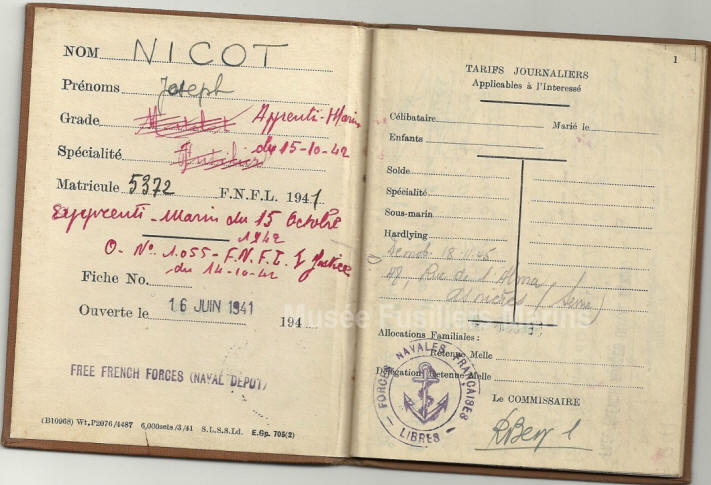 NOM NICOT
Prénoms Joseph
Grade Matelot Apprenti-Marin
du 15-10-42
Spécialité Fusilier
Matricule 5372 F.N.F.L. 1941
Apprenti-Marin du 15 Octobre
1942
O. No 1.055 - F.N.F.L. / Justice
du 14-10-42
Fiche No.
Ouverte le 16 JUIN 1941 194
FREE FRENCH FORCES (NAVAL DEPOT)
(B10968) Wt.P2076/4487 6,000sets/3/41 S.L.S.S.Ld. E.Gp. 705(2)
1
TARIFS JOURNALIERS
Applicables à l'Interessé
Célibataire Marié le
Enfants
Solde
Spécialité
Sous-marin
Hardlying
Demob 18-11-45
48, Rue de l'Alma
Asnières (Seine)
Musée Fusiliers Marins
Allocations Familiales:
Retenue Melle
Délégation Retenue Melle
FORCES NAVALES FRANÇAISES
LIBRES
Le COMMISSAIRE